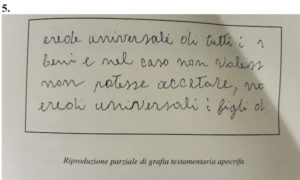 5.
erede universale di tutti i
beni e nel caso non valess
non potesse accettare, no
eredi universali i figli d
Riproduzione parziale di grafia testamentaria apocrifa